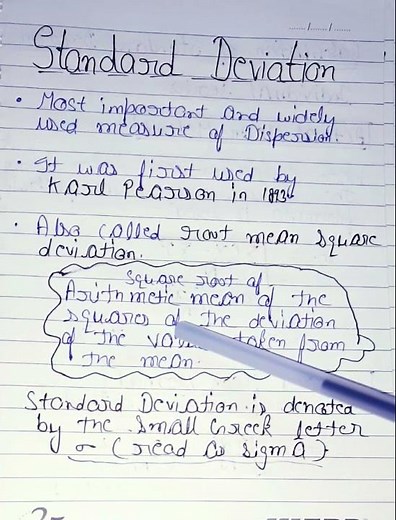 Standard Deviation
• Most important and widely
used measure of Dispersion.
• It was first used by
Karl Pearson in 1893
• Also called root mean square
deviation.
Square root of
Arithmetic mean of the
squares of the deviation
of the taken from
the mean.
Standard Deviation is denoted
by the small Greek letter
σ (read as sigma)